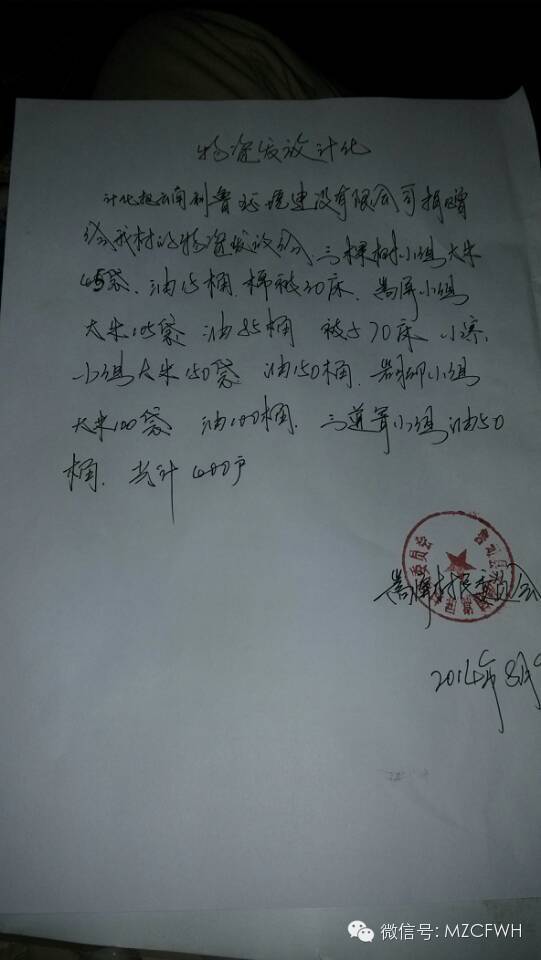 物资发放计化
计化把云南利鲁环境建设有限公司捐赠
给我村的物资发放给 三棵树小组大米
45袋、油15桶 棉被30床、 小组
大米105袋 油85桶 被子70床 小寨
小组大米150袋 油150桶 小组
大米100袋 油100桶 三道 小组油50
桶 共计400户
村民委员会
2014年8月
微信号: MZCFWH